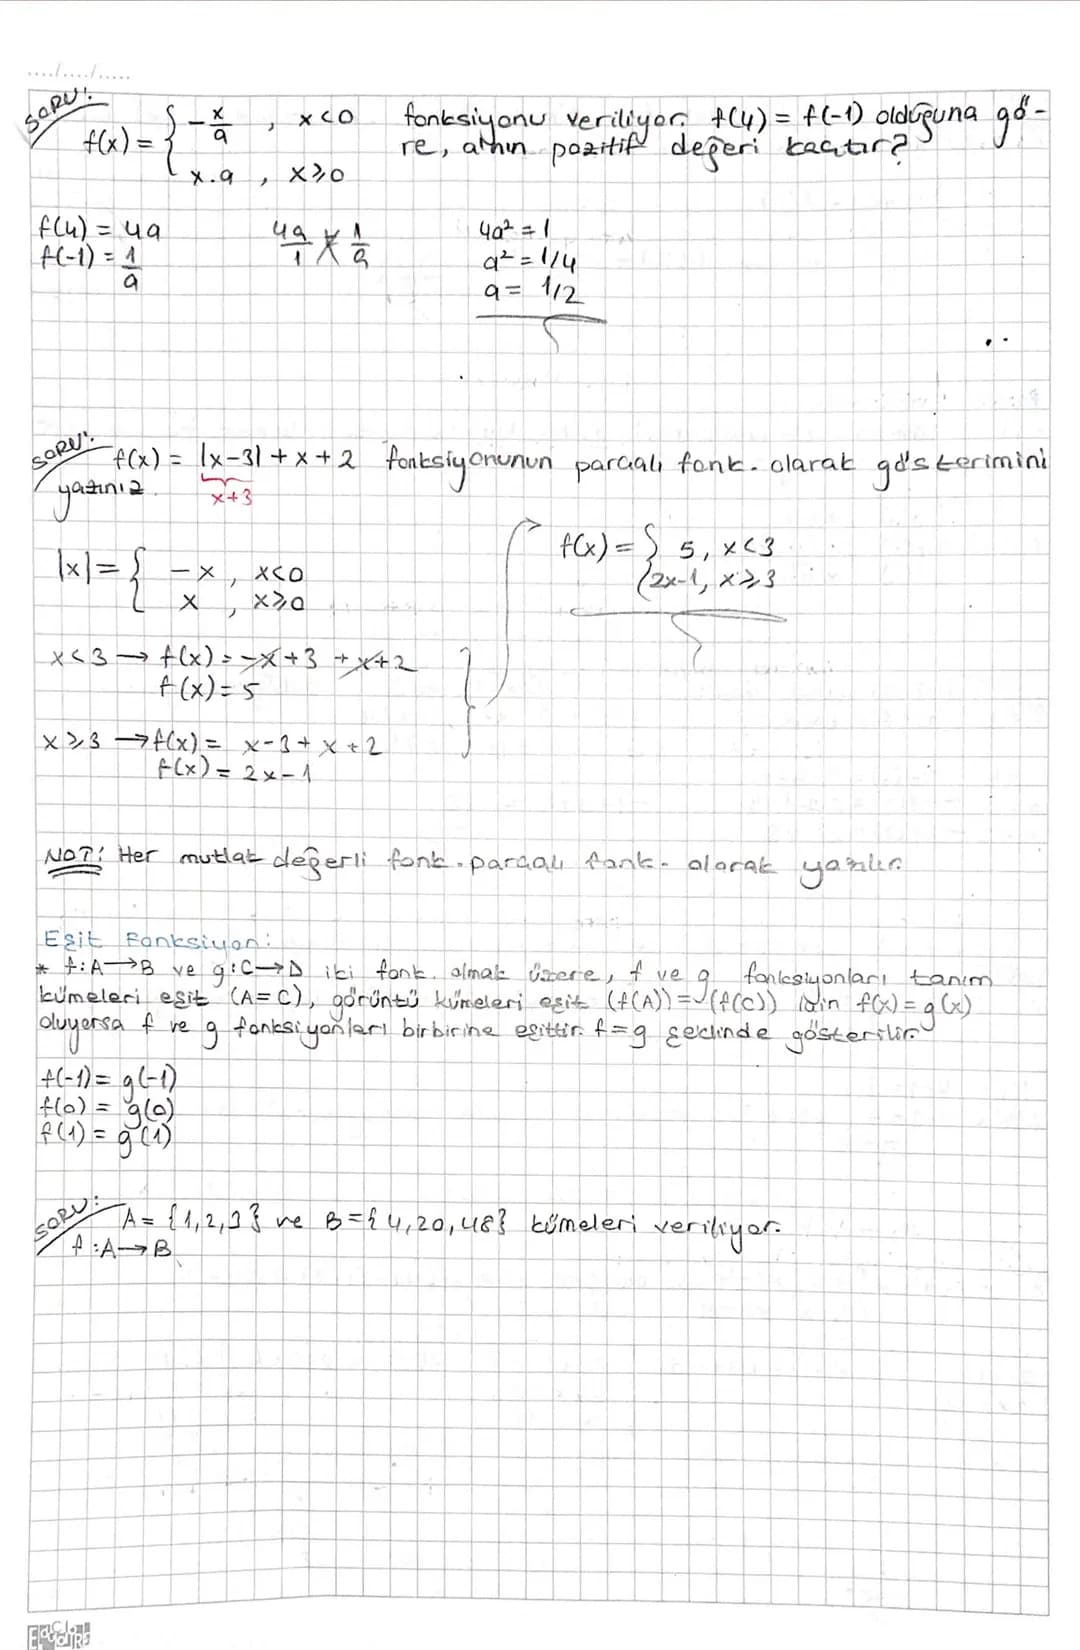 ..../..../.....
SORU:
f(x) = { -x/a , x<0 fonksiyonu veriliyor. f(4) = f(-1) olduğuna gö-
x.a , x⩾0 re, a'nın pozitif değeri kaçtır?
f(4) = 4a
f(-1) = 1/a
4a/1 = 1/a
4a² = 1
a² = 1/4
a = 1/2
SORU: f(x) = |x-3| + x + 2 fonksiyonunun parçalı fonk. olarak gösterimini
yazınız.
x+3
|x| = { -x , x<0
x , x⩾0
f(x) = { 5, x<3
2x-1, x⩾3
x<3 → f(x) = -x+3 +x+2
f(x) = 5
x⩾3 → f(x) = x-3+x+2
f(x) = 2x-1
NOT: Her mutlak değerli fonk. parçalı fonk. olarak yazılır.
Eşit Fonksiyon:
* f:A→B ve g:C→D iki fonk. olmak üzere, f ve g fonksiyonları tanım
kümeleri eşit (A=C), görüntü kümeleri eşit (f(A)) = (f(C)) için f(x) = g(x)
oluyorsa f ve g fonksiyonları birbirine eşittir. f=g şeklinde gösterilir.
f(-1) = g(-1)
f(0) = g(0)
f(1) = g(1)
SORU: A = {1,2,3} ve B = {4,20,48} kümeleri veriliyor.
f:A→B